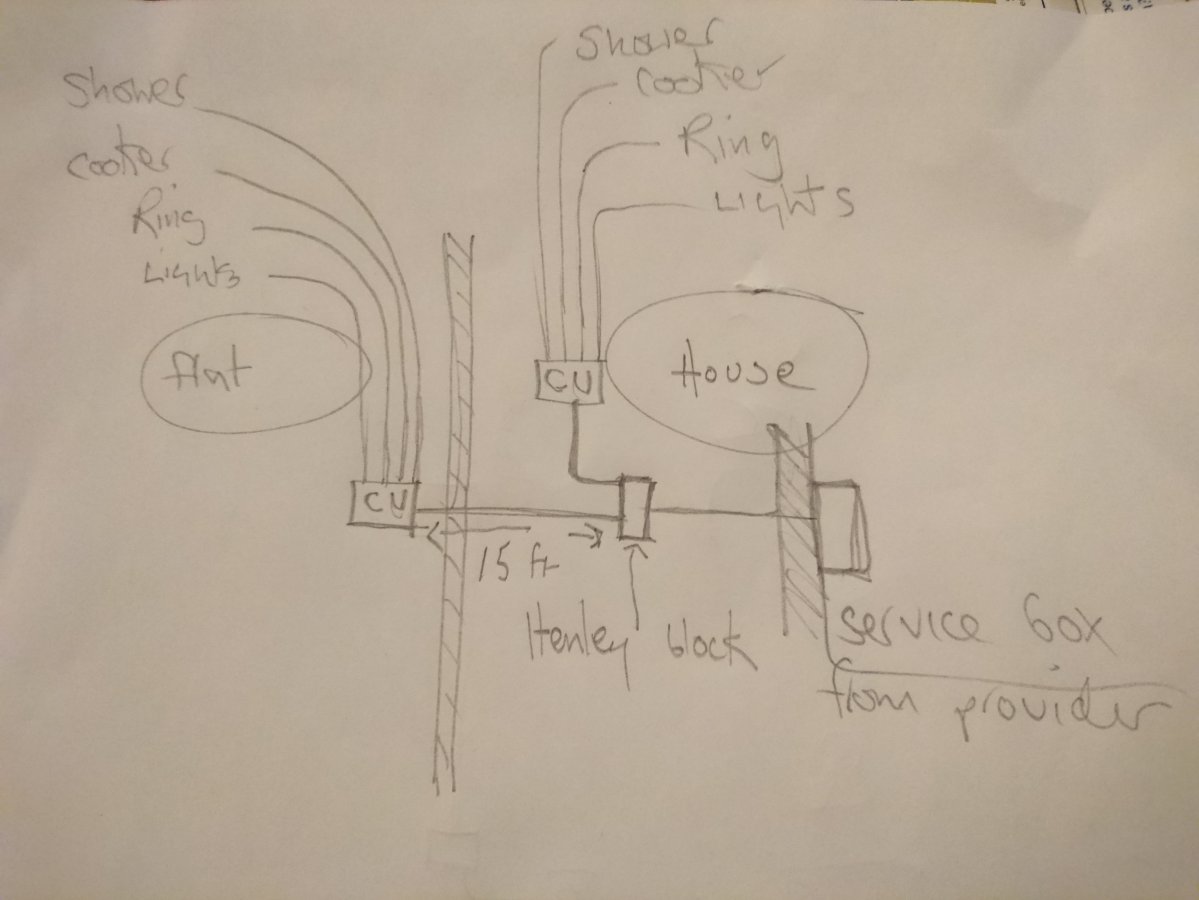 Shower
Cooker
Ring
Lights
Shower
Cooker
Ring
Lights
flat
House
CU
CU
15 ft
Henley block
service box
from provider